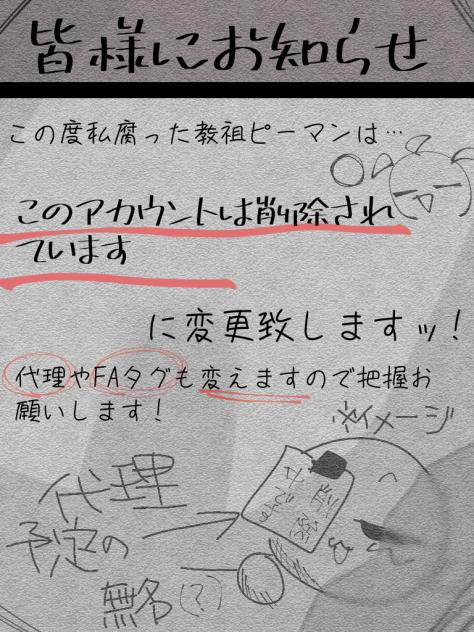 皆様にお知らせ
この度私腐った教祖ピーマンは…
このアカウントは削除され
ています
に変更致しますッ！
代理やFAタグも変えますので把握お
願いします！
※イメージ
代理
予定の
無名(?)
削除
中です